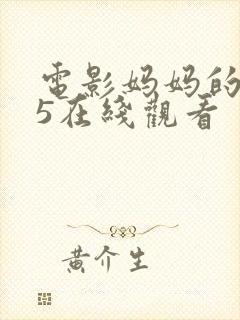 電影妈妈的
5在綫觀看
黄介生